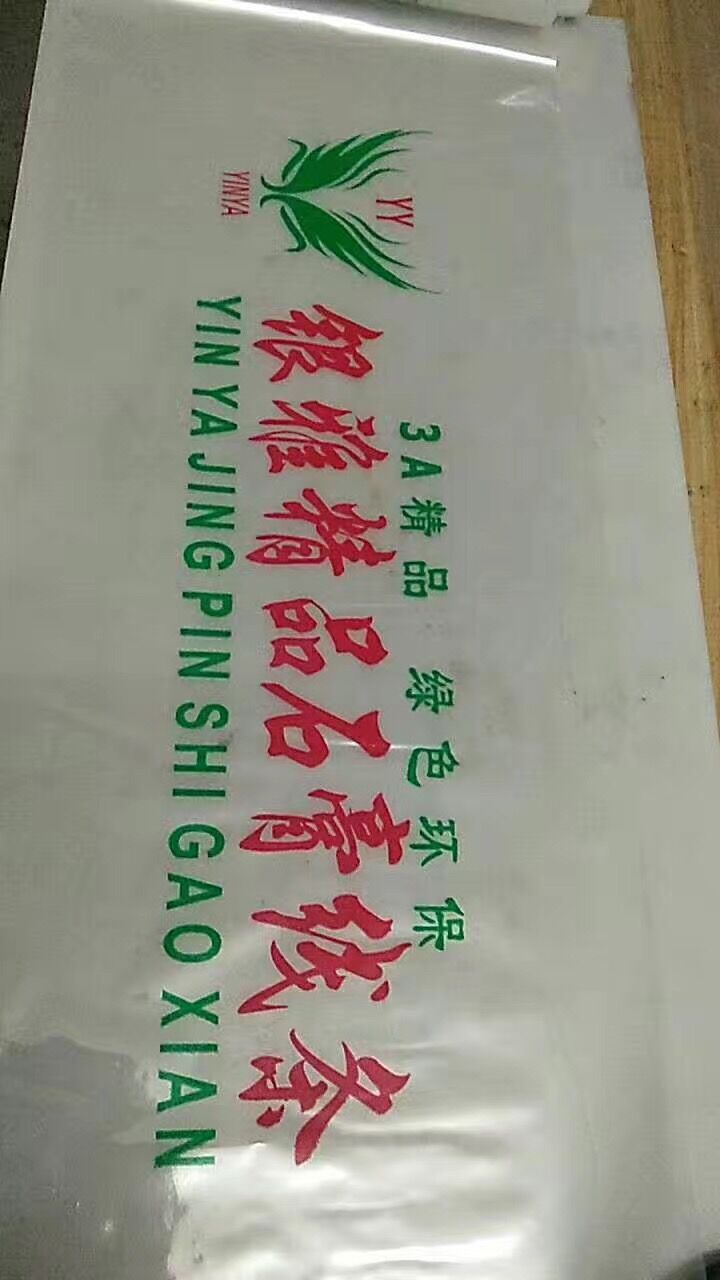 YY
YINYA
3A精品 绿色环保
银雅精品石膏线条
YIN YA JING PIN SHI GAO XIAN